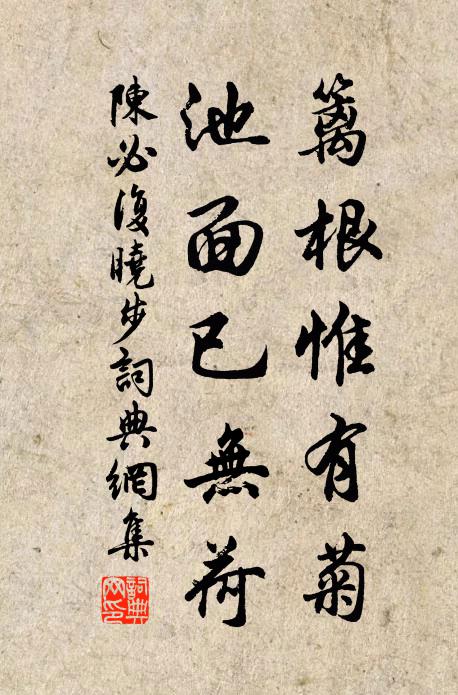 籬根惟有菊
池面已無荷
陳必復曉步詞典網集
詞典網印